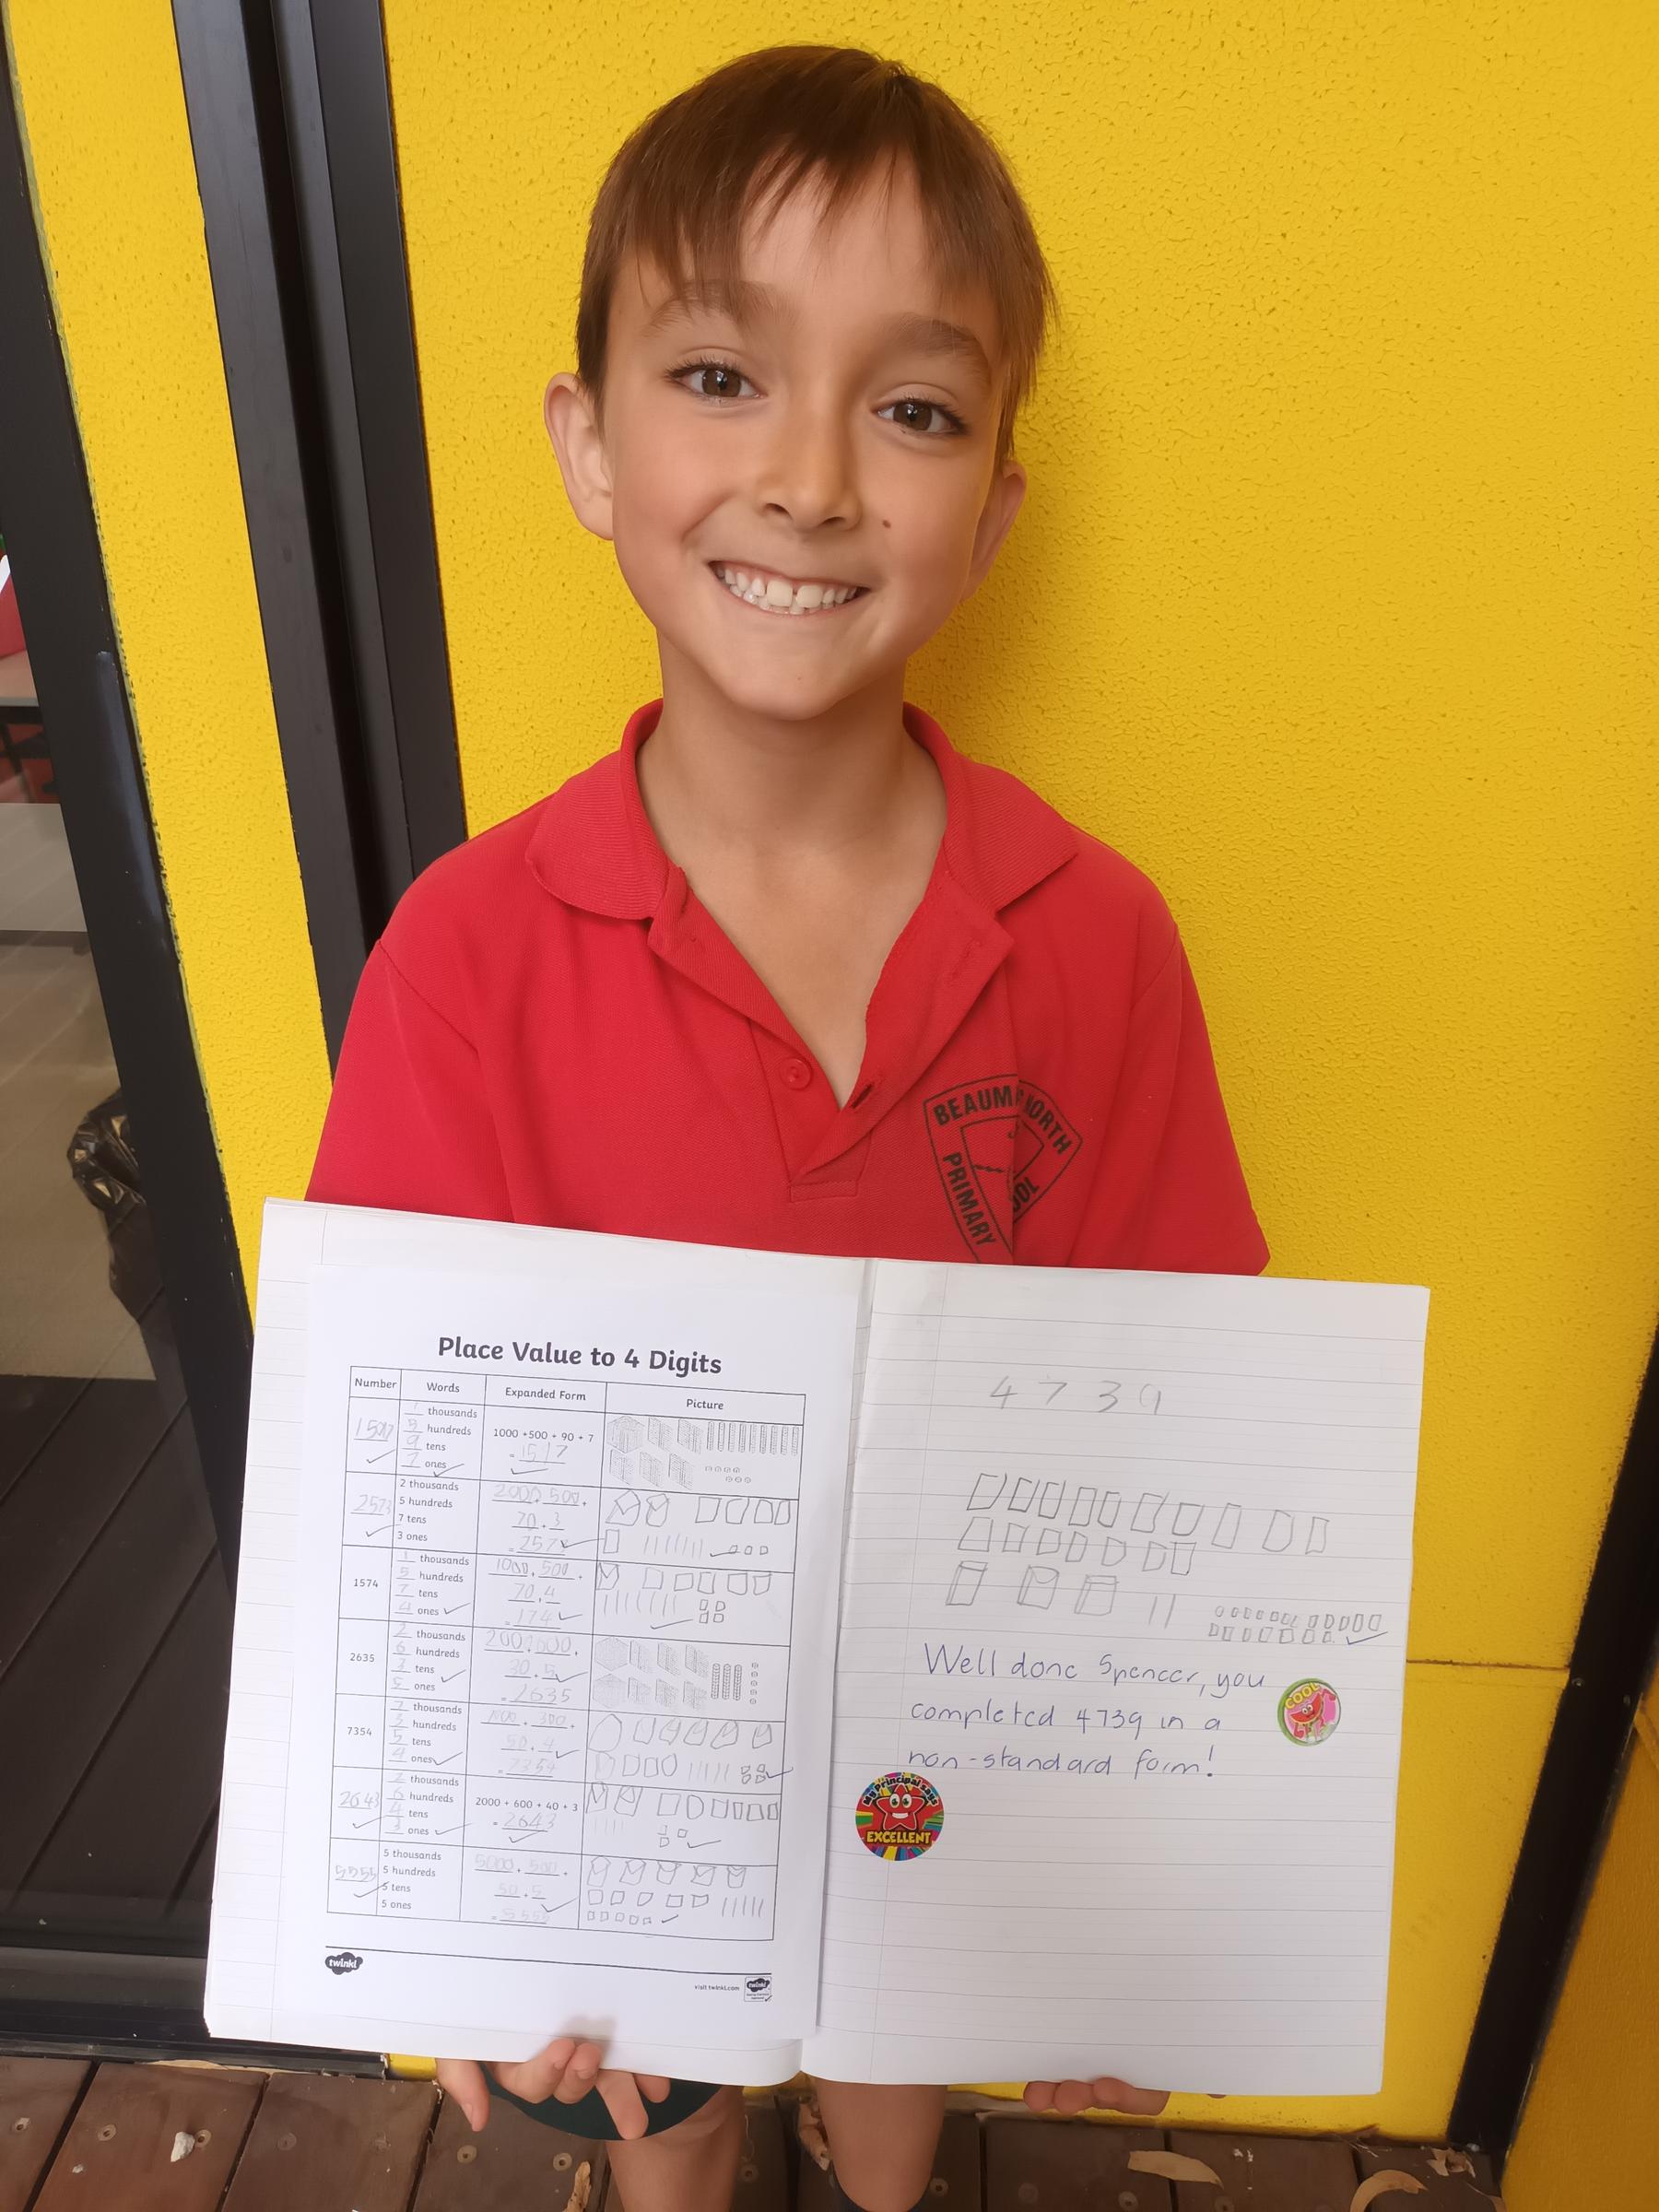 BEAUM NORTH
PRIMARY
OOL
Place Value to 4 Digits
Number Words Expanded Form Picture
1 thousands
5 hundreds
9 tens
7 ones
1000 +500 + 90 + 7
2573
2 thousands
5 hundreds
7 tens
3 ones
2000 + 500 +
70 + 3
1574
1 thousands
5 hundreds
7 tens
4 ones
1000 + 500 +
70 + 4
= 174
2635
2 thousands
6 hundreds
3 tens
5 ones
30 + 5
= 2635
7354
7 thousands
3 hundreds
5 tens
4 ones
50 + 4
= 7354
2643
2 thousands
6 hundreds
4 tens
3 ones
2000 + 600 + 40 + 3
= 2643
5555
5 thousands
5 hundreds
5 tens
5 ones
5000 + 500 +
50 + 5
= 5555
twinkl
visit twinkl.com
twinkl
4739
Well done Spencer, you
completed 4739 in a
non-standard form!
COOL
My Principal says
EXCELLENT